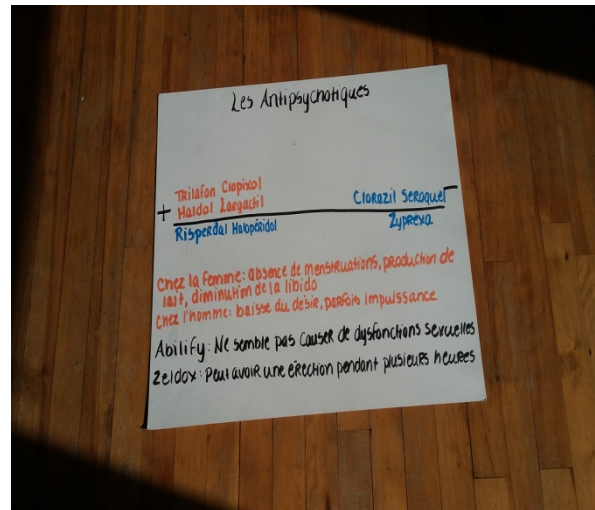 Les Antipsychotiques
Trilafon Clopixol
+ Haldol Largactil
Clorazil Seroquel -
Risperdal Halopéridol
Zyprexa
Chez la femme: absence de menstruations, production de
lait, diminution de la libido
Chez l'homme: baisse du désir, parfois impuissance
Abilify: Ne semble pas causer de dysfonctions sexuelles
Zeldox: Peut avoir une érection pendant plusieurs heures